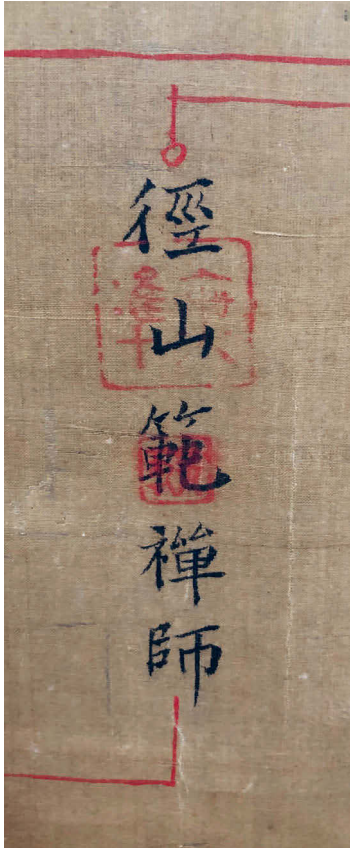 徑山範禪師